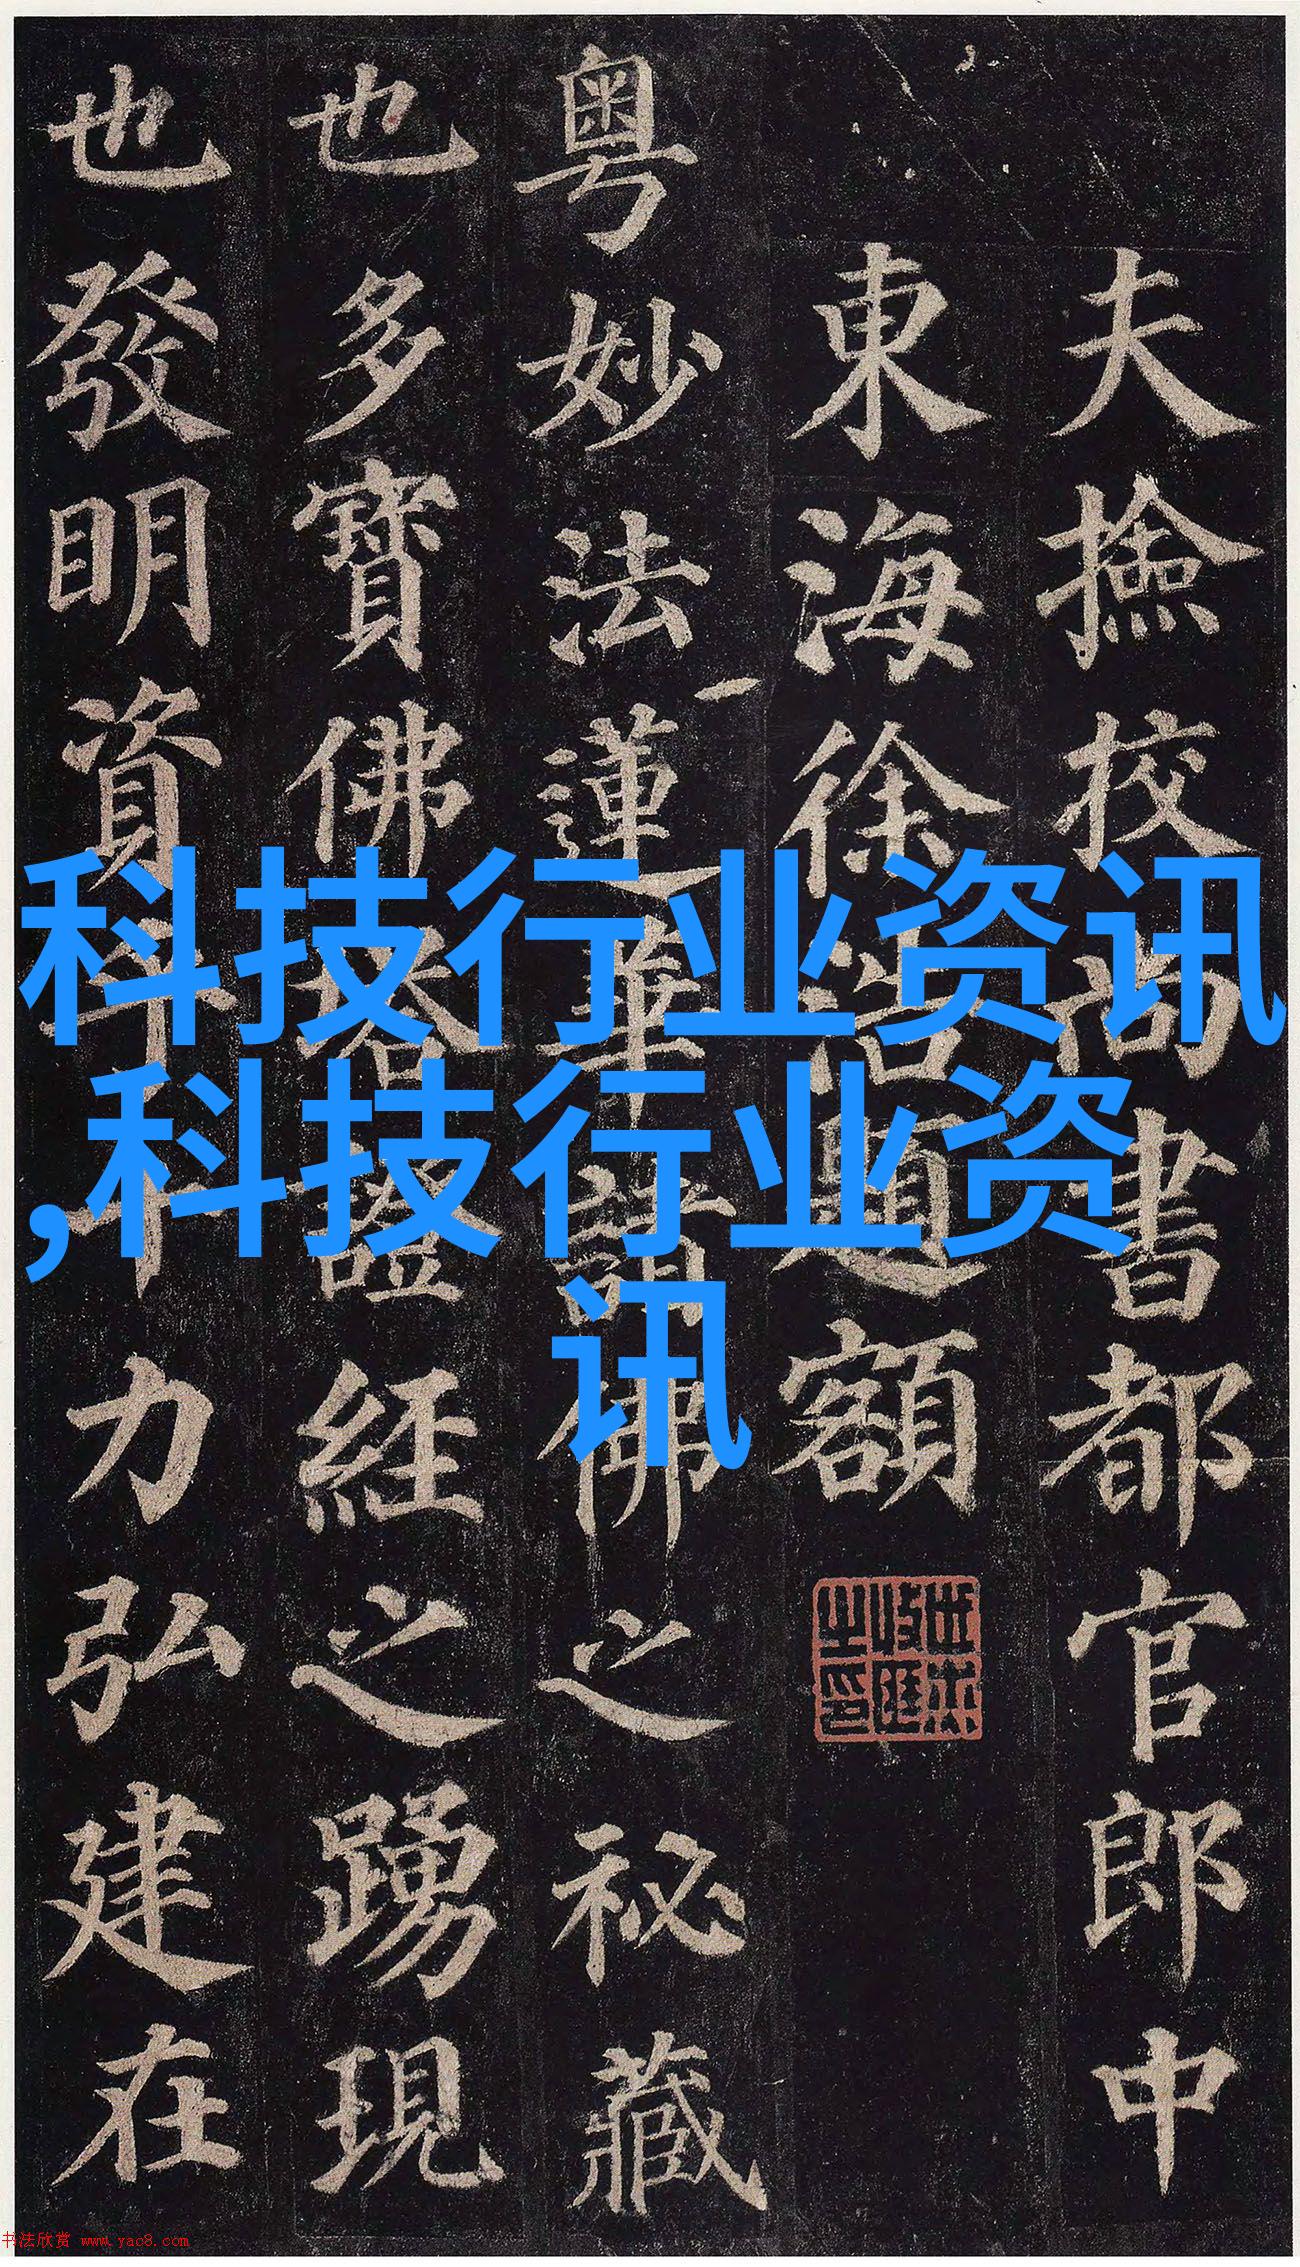 夫撿挍尚書都官郎中
東海徐浩題額
粤妙法蓮華諸佛之祕藏
也多寶佛塔證經之踴現
也發明資乎十力弘建在
科技行业资讯
,科技行业资
讯
书法欣赏 www.yac8.com